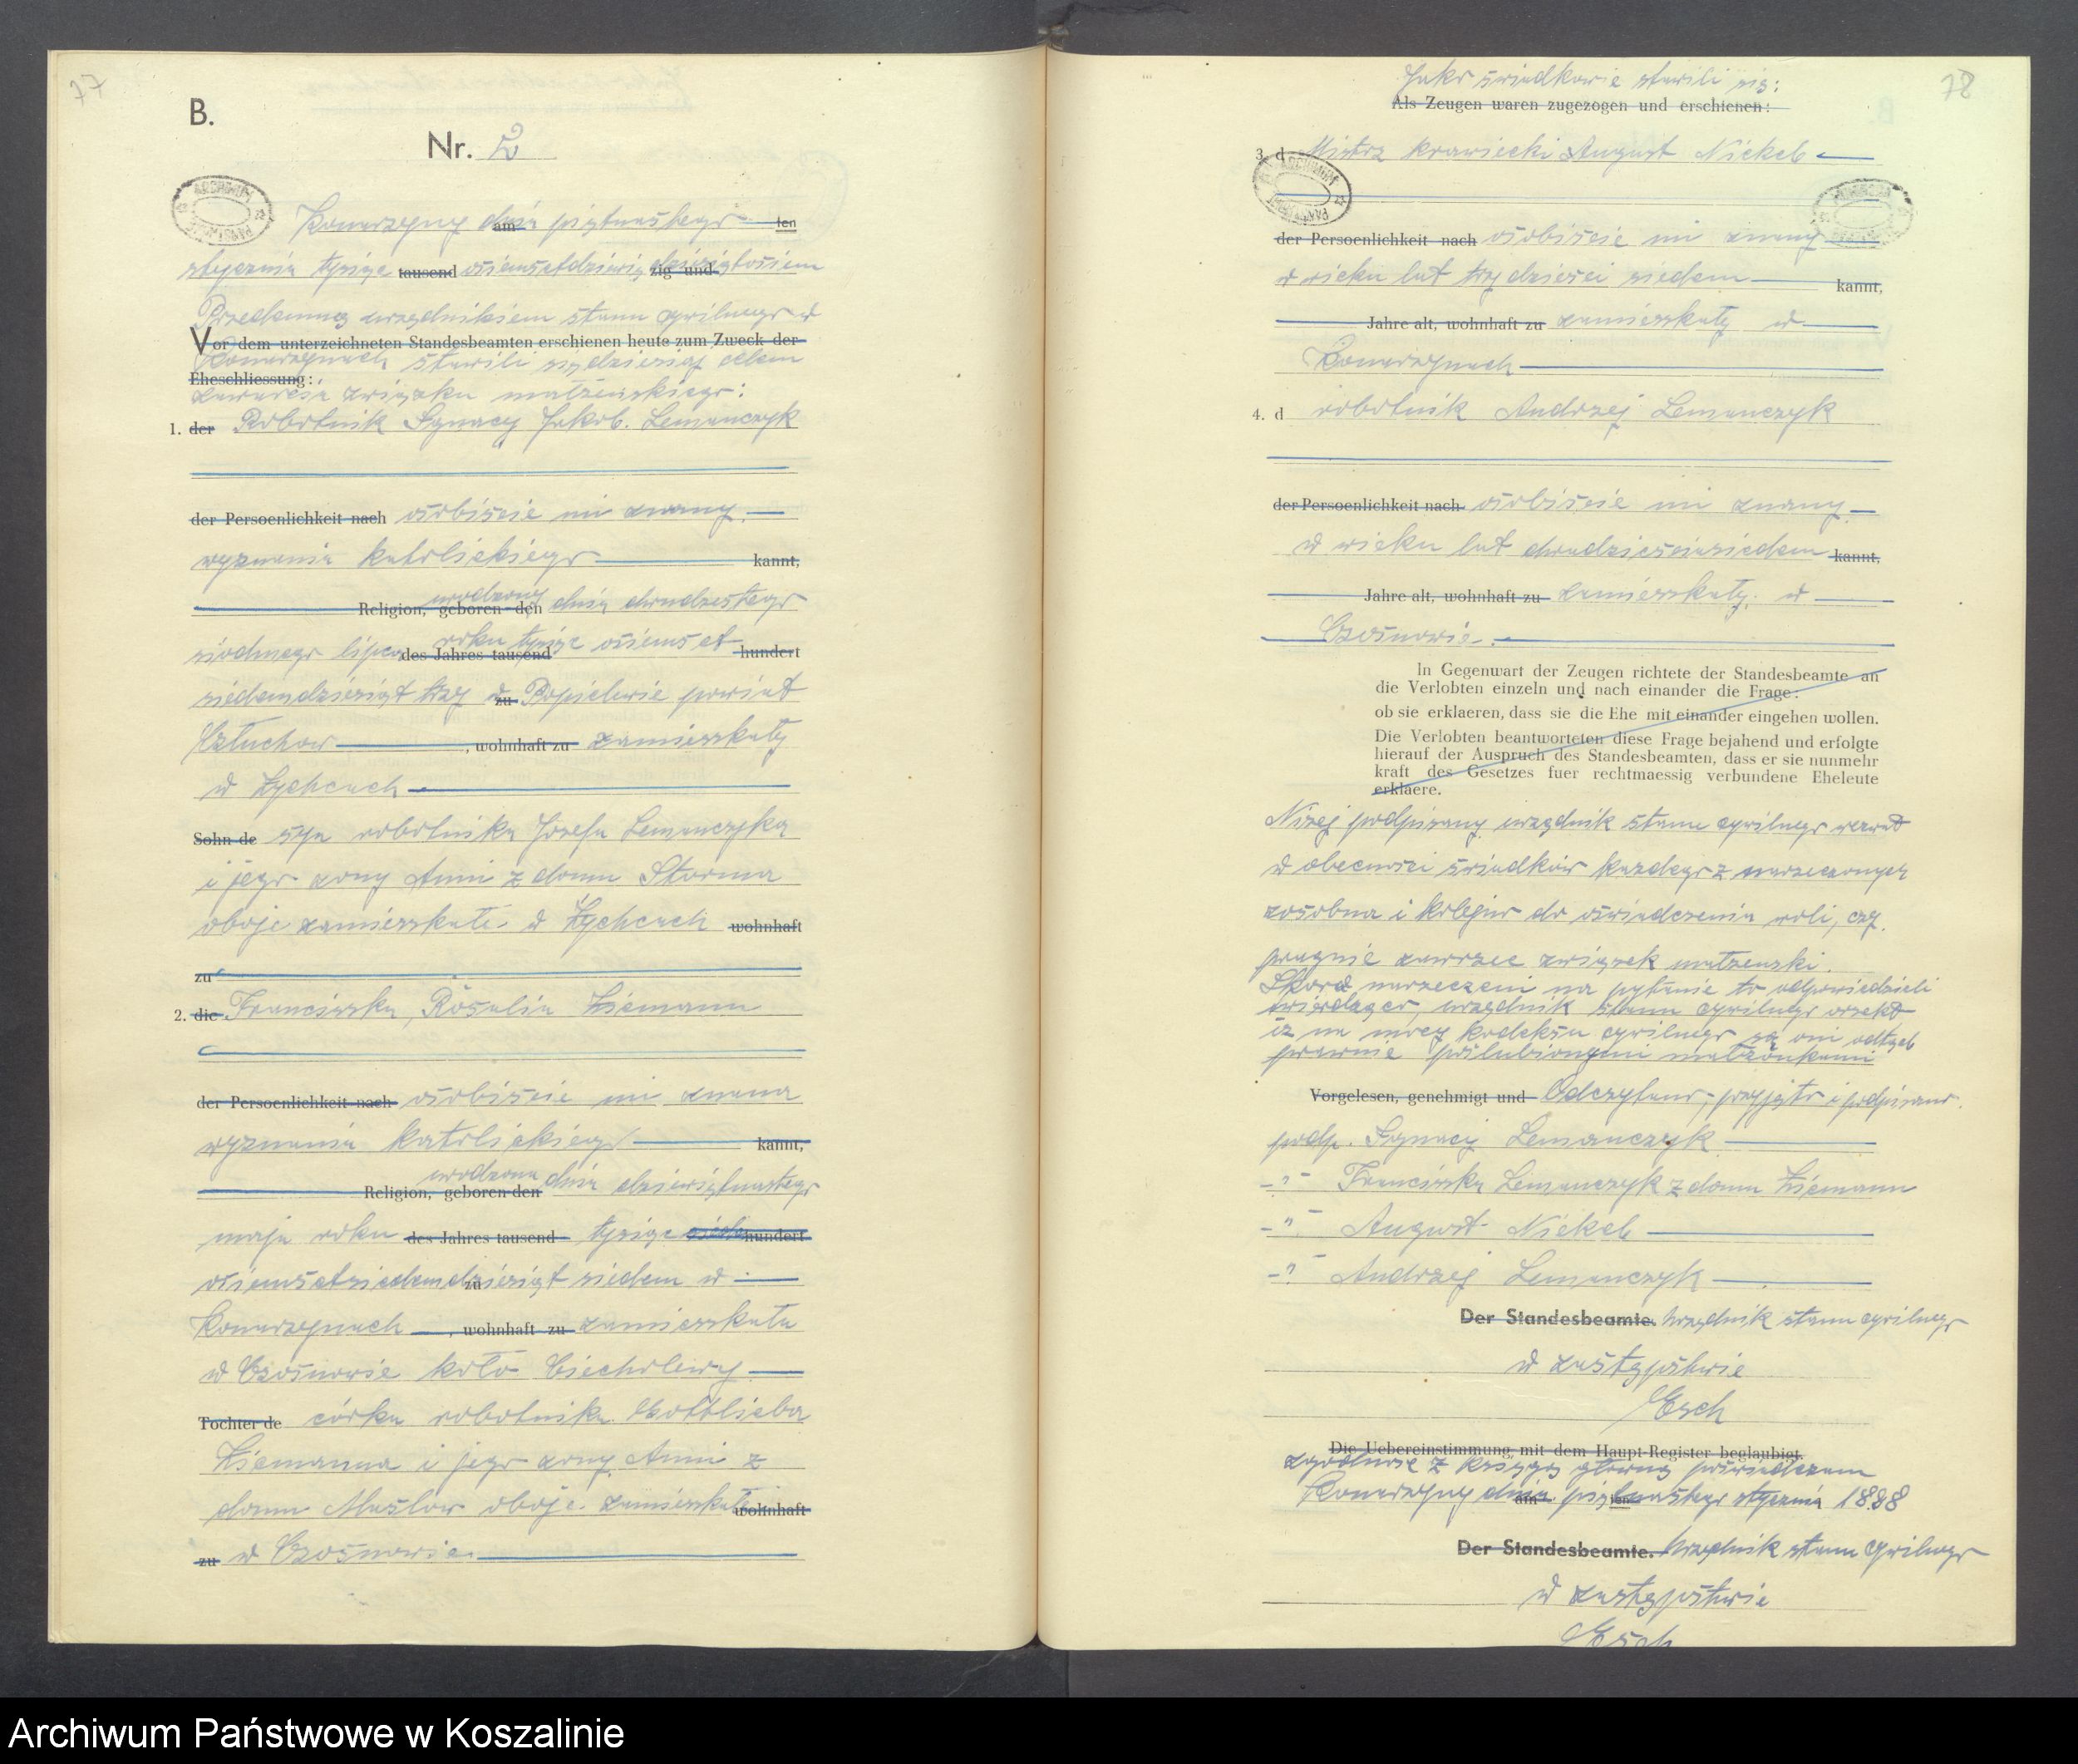 77
B.
Nr. 2
ARCHIWUM PAŃSTWOWE
Konarzyny dnia am piętnastego ten
stycznia tysiąc tausend osiemsetdziewięćdziesiąt zig und ośiem
Przedemną urzędnikiem stanu cywilnego w
Vor dem unterzeichneten Standesbeamten erschienen heute zum Zweck der
Konarzynach stawili się dzisiaj celem
Eheschliessung:
zawarcia związku małżenskiego:
1. der Robotnik Ignacy Jakob. Lemanczyk
der Persoenlichkeit nach osobiscie mi znany.
wyznania katolickiego kannt,
urodzony
Religion, geboren den dnia dwudziestego
siodmego lipca roku des Jahres tausend tysiąc ośiemset hundert
siedemdziesiąt trzy w zu Popielewie powiat
Człuchow , wohnhaft zu zamieszkały
w Żychcach
Sohn de syn robotnika Jozefa Lemanczyka
i jego zony Anni z domu Storma
oboje zamieszkałe w Żychcach wohnhaft
zu
2. die Franciszka, Rosalia Ziemann
der Persoenlichkeit nach osobiscie mi znana
wyznania katolickiego kannt,
urodzona
Religion, geboren den dnia dziewiętnastego
maja roku des Jahres tausend tysiąc hundert
ośiemsetsiedemdziesiąt zu siedem w
Konarzynach , wohnhaft zu zamieszkała
w Czosnowie koło Ciecholewy
Tochter de córka robotnika Gottlieba
Ziemanna i jego zony Anni z
domu Masłow oboje zamieszkałe wohnhaft
zu w Czosnowie.
78
Jako świadkowie stawili się:
Als Zeugen waren zugezogen und erschienen:
3. d Mistrz krawiecki August Nickel
ARCHIWUM PAŃSTWOWE
der Persoenlichkeit nach osobiscie mi znany
w wieku lat trzydziesci siedem kannt,
Jahre alt, wohnhaft zu zamieszkały w
Konarzynach
4. d robotnik Andrzej Lemanczyk
der Persoenlichkeit nach osobiscie mi znany
w wieku lat dwadziesciasiedem kannt,
Jahre alt, wohnhaft zu zamieszkały w
Czosnowie.
In Gegenwart der Zeugen richtete der Standesbeamte an
die Verlobten einzeln und nach einander die Frage:
ob sie erklaeren, dass sie die Ehe mit einander eingehen wollen.
Die Verlobten beantworteten diese Frage bejahend und erfolgte
hierauf der Auspruch des Standesbeamten, dass er sie nunmehr
kraft des Gesetzes fuer rechtmaessig verbundene Eheleute
erklaere.
Nizej podpisany urzędnik stanu cywilnego wezwał
w obecnosci świadków kazdego z narzeczonych
zosobna i kolejno do oświadczenia woli, czy
pragnie zawrzec związek małzenski.
Skoro narzeczeni na pytanie to odpowiedzieli
twierdząco, urzędnik stanu cywilnego orzekł
iz na mocy kodeksu cywilnego są oni odtąd
prawnie poślubionymi małzonkami
Vorgelesen, genehmigt und Odczytano, przyjęto i podpisano.
podp. Ignacy Lemanczyk
-"- Franciszka Lemanczyk z domu Ziemann
-"- August Nickel
-"- Andrzej Lemanczyk
Der Standesbeamte. Urzędnik stanu cywilnego
w zastępstwie
Esch
Die Uebereinstimmung mit dem Haupt-Register beglaubigt.
zgodnosc z księgą głowną poswiadczam
Konarzyny dnia am piętnastego ten stycznia 1898
Der Standesbeamte. Urzędnik stanu cywilnego
w zastępstwie
Esch
Archiwum Państwowe w Koszalinie